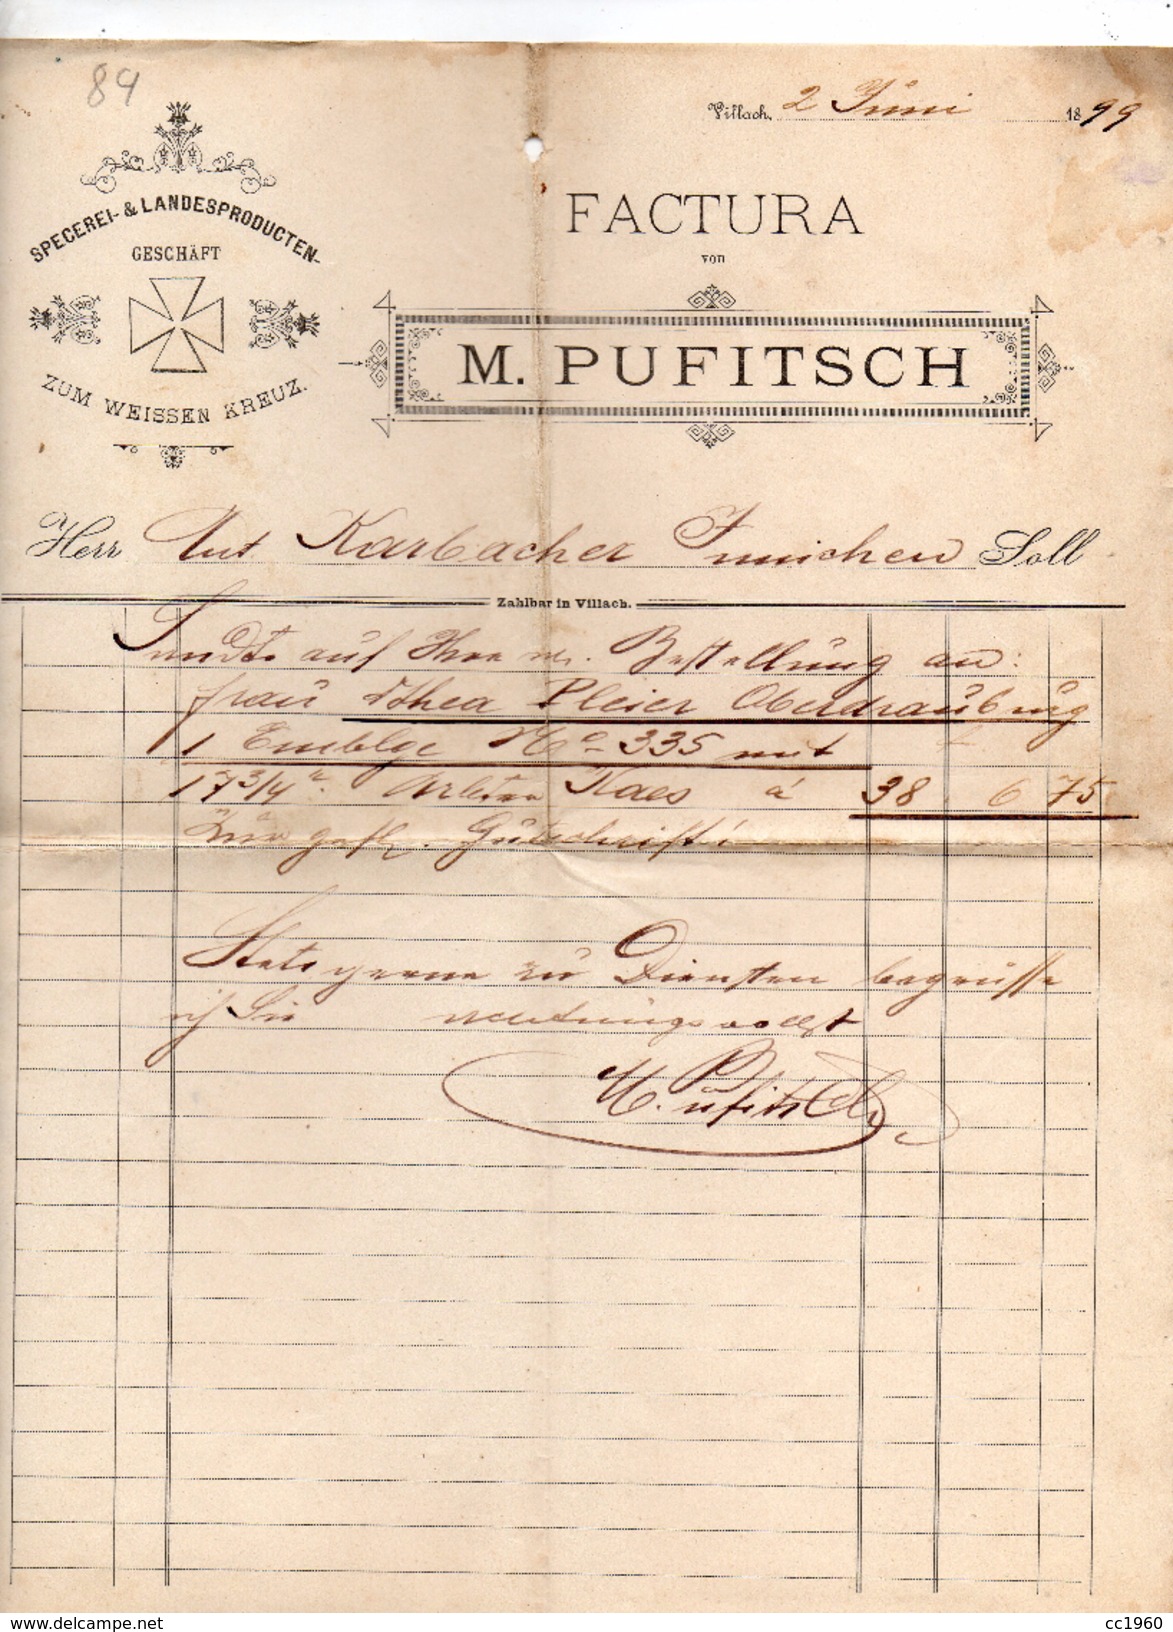 84
Villach, 2 Juni 1899
SPECEREI- & LANDESPRODUCTEN-
GESCHÄFT
ZUM WEISSEN KREUZ.
FACTURA
von
M. PUFITSCH
Herr Ant Karbacher Innichen Soll
Zahlbar in Villach.
Sandte auf Ihre w. Bestellung an:
Frau Thea Pleier Oberdrauburg
1 Emblge No 335 mit
17 3/4 Kaes à 38 6 75
zur gefl. Gutschrift
Stets gerne zu Diensten begrüsse
ich Sie achtungsvollst
M. Pufitsch
www.delcampe.net
cc1960